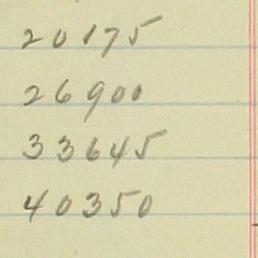 20175
26900
33645
40350